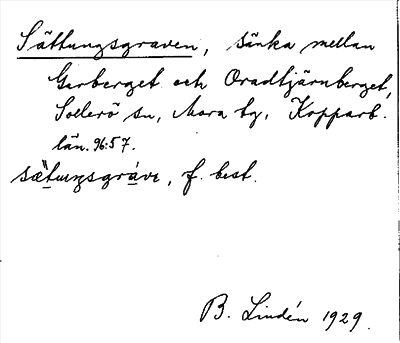 Sättungsgraven, sänka mellan
Gerberget och Oradtjärnberget,
Sollerö sn, Mora tg, Kopparb.
län. 96:57.
sæ̀tuŋsgrávɩ, f. best.
B. Lindén 1929.